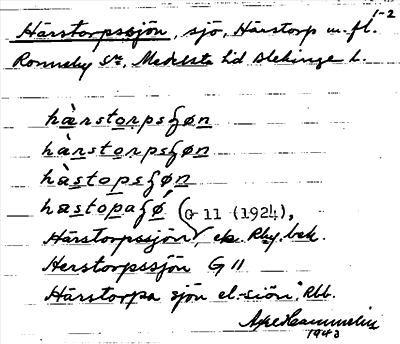 1-2
Härstorpssjön, sjö, Härstorp m. fl.
Ronneby sn, Medelsta hd Blekinge l.
hàrstorpsʃøn
hàrstorpsʃøn
hàstopsʃøn
hastopaʃǿ (G 11 (1924),
Härstorpssjön, ek. Rby. bek.
Herstorpssjön G 11
Härstorpa sjön el. -siön, Rbb.
1943